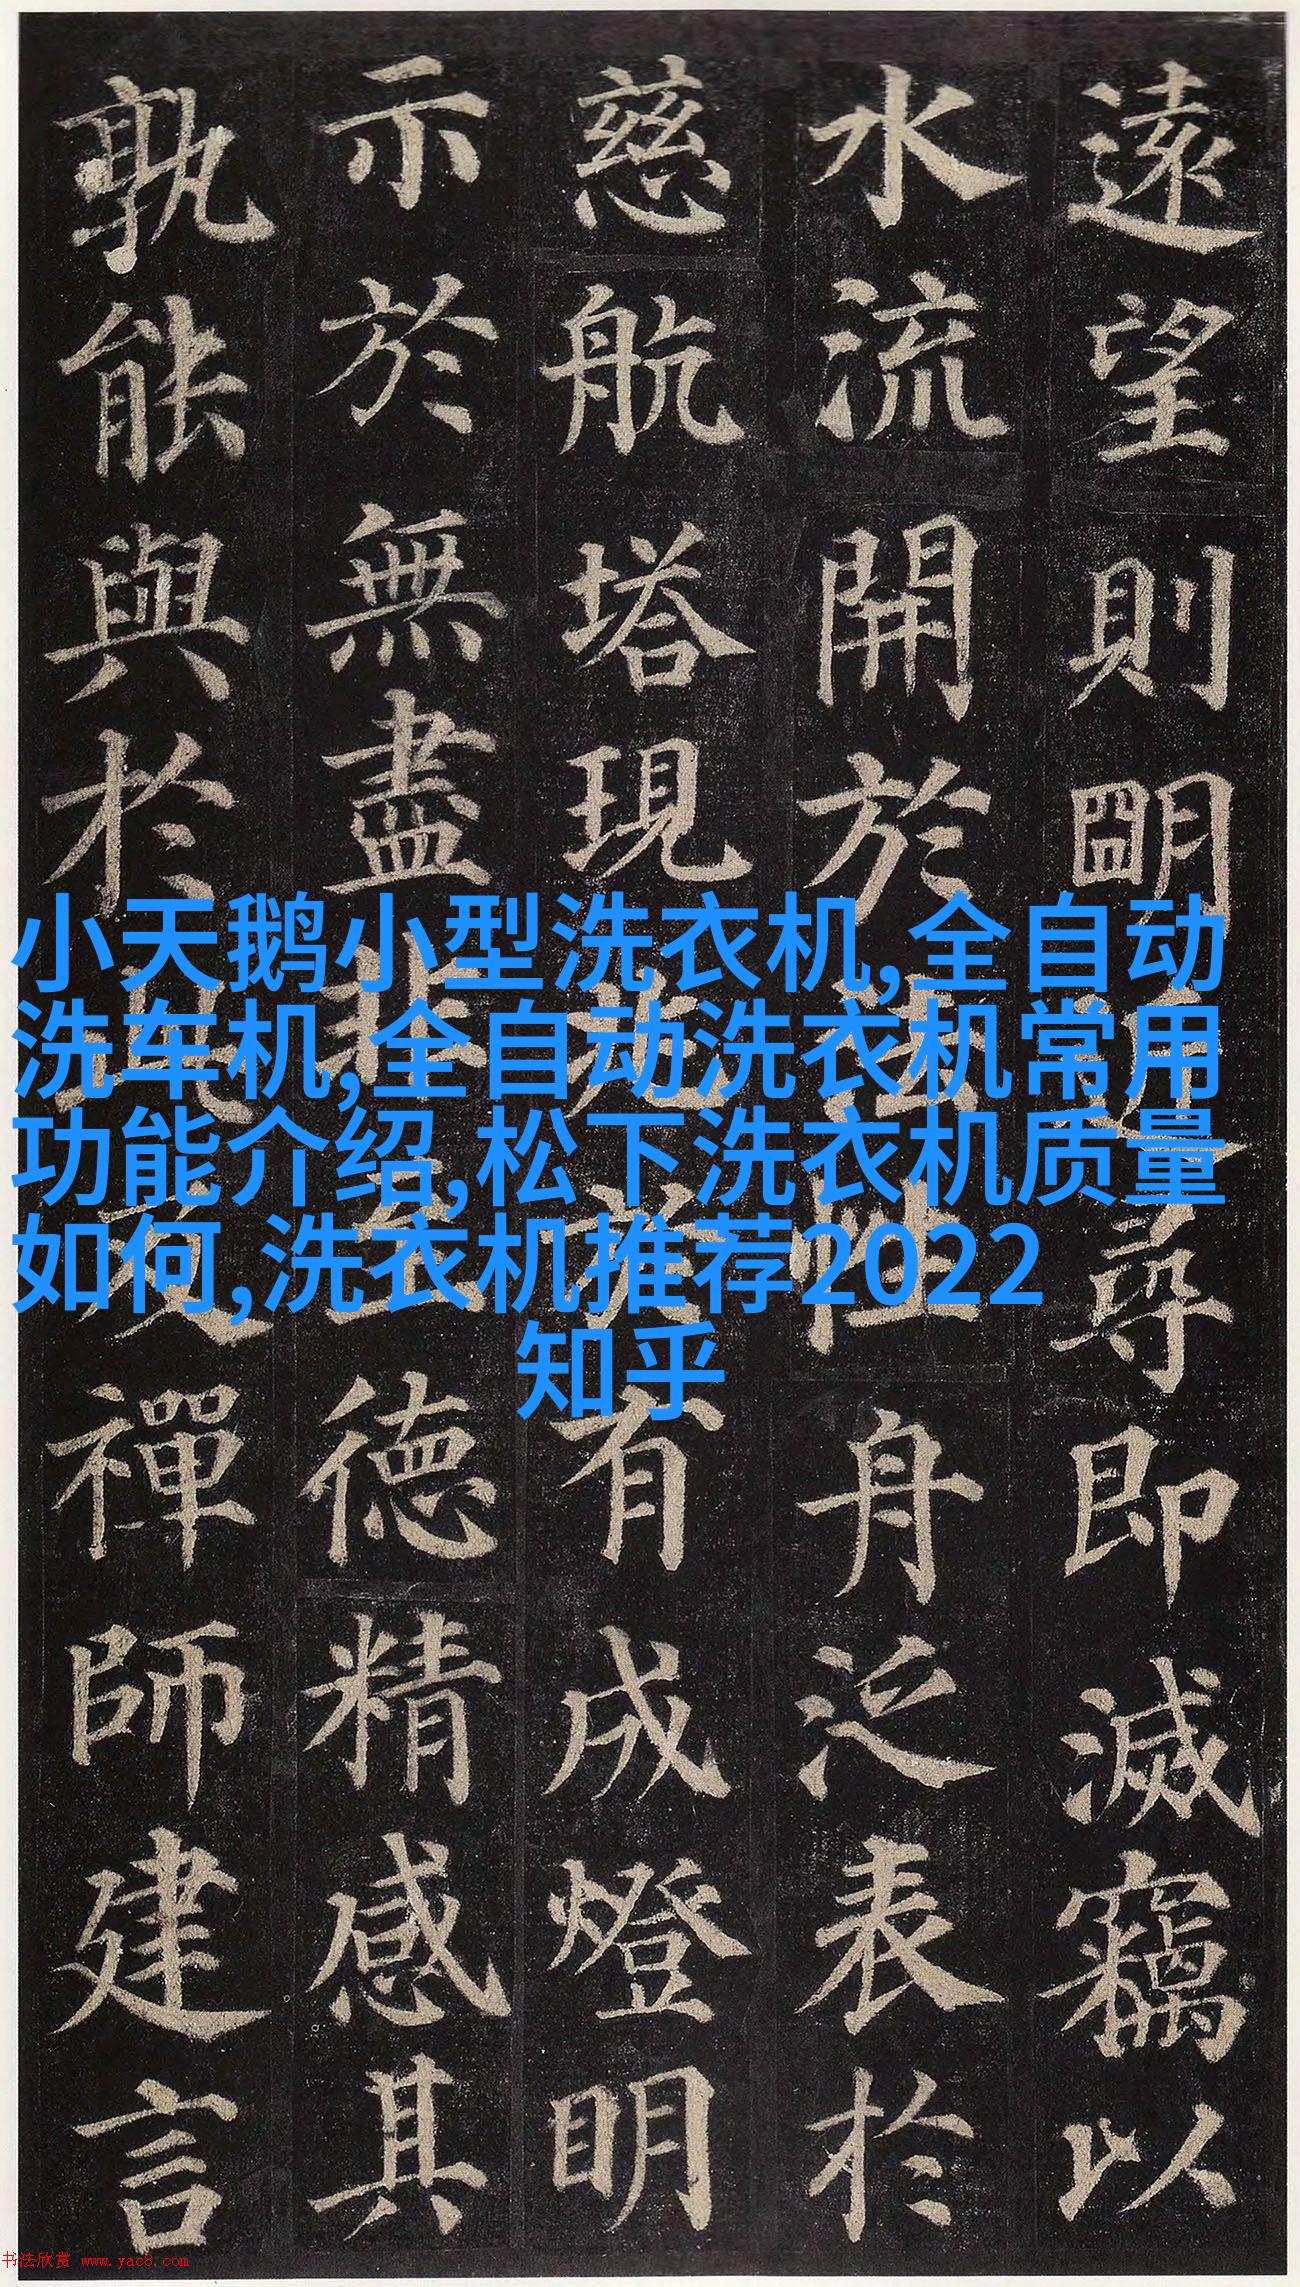 遠望則朙近尋即滅竊以
水流開於法性舟泛表於
慈航塔現兆於有成燈明
示於無盡非至德精感其
孰能與於此及禪師建言
小天鹅小型洗衣机,全自动
洗车机,全自动洗衣机常用
功能介绍,松下洗衣机质量
如何,洗衣机推荐2022
知乎
书法欣赏 www.yac8.com